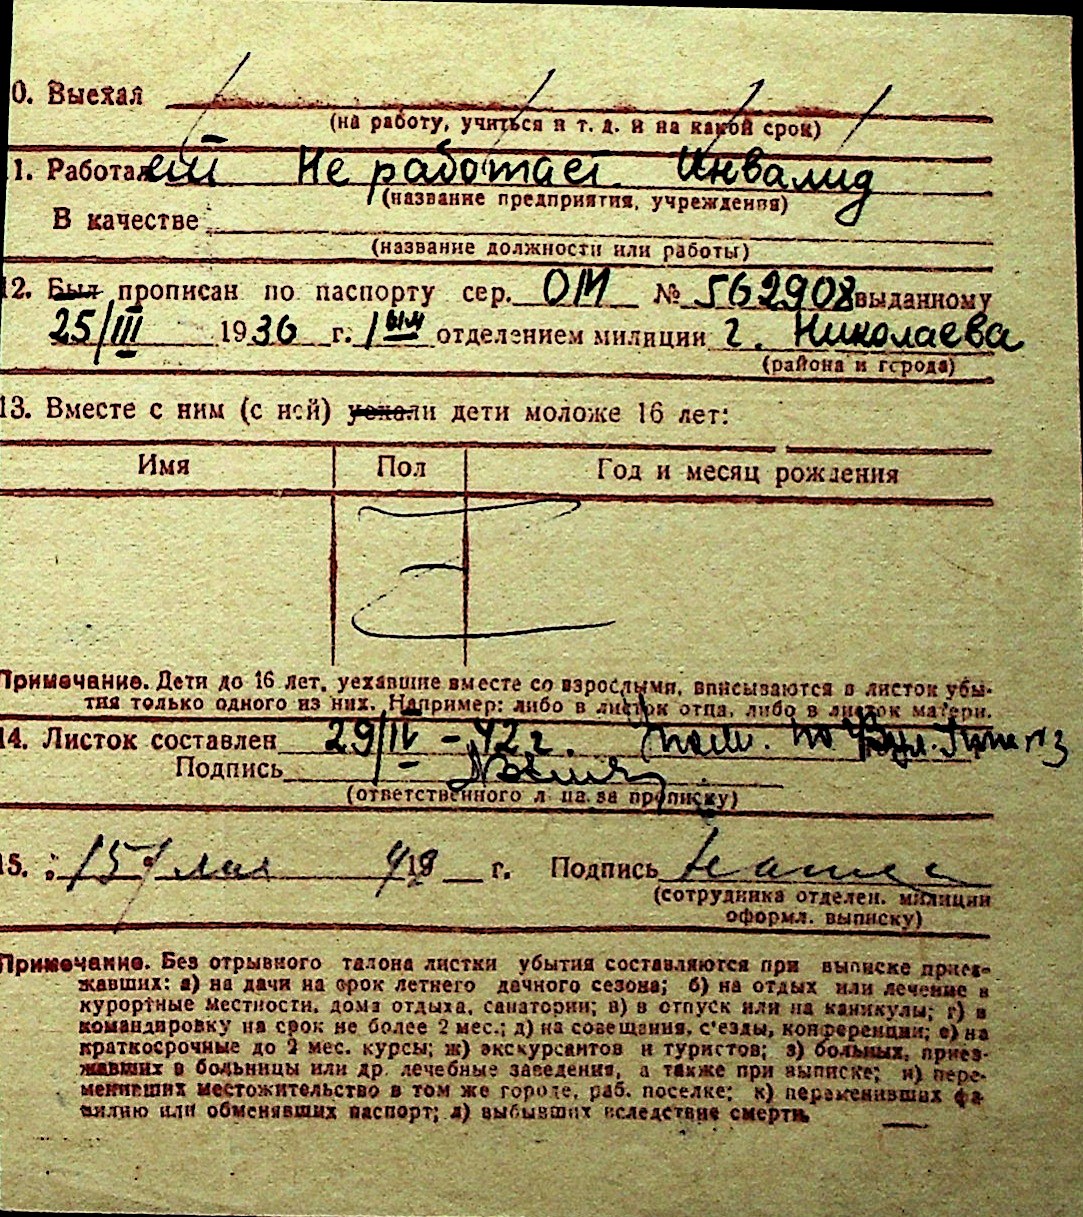 0. Выехал
(на работу, учиться и т. д. и на какой срок)
1. Работает Не работает. Инвалид
(название предприятия, учреждения)
В качестве
(название должности или работы)
12. Был прописан по паспорту сер. ОМ № 562908 выданному
25/III 1936 г. 1ым отделением милиции г. Николаева
(района и города)
13. Вместе с ним (с ней) уехали дети моложе 16 лет:
Имя Пол Год и месяц рождения
Примечание. Дети до 16 лет, уехавшие вместе со взрослыми, вписываются в листок убы-
тия только одного из них. Например: либо в листок отца, либо в листок матери.
14. Листок составлен 29/IV - 42 г.
Подпись
(ответственного лица за прописку)
15. 15 мая г. Подпись
(сотрудника отделен. милиции
оформл. выписку)
Примечание. Без отрывного талона листки убытия составляются при выписке приез-
жавших: а) на дачи на срок летнего дачного сезона; б) на отдых или лечение в
курортные местности, дома отдыха, санатории; в) в отпуск или на каникулы; г) в
командировку на срок не более 2 мес.; д) на совещания, с'езды, конференции; е) на
краткосрочные до 2 мес. курсы; ж) экскурсантов и туристов; з) больных, приез-
жавших в больницы или др. лечебные заведения, а также при выписке; и) пере-
менивших местожительство в том же городе, раб. поселке; к) переменивших фа-
милию или обменявших паспорт; л) выбывших вследствие смерти.